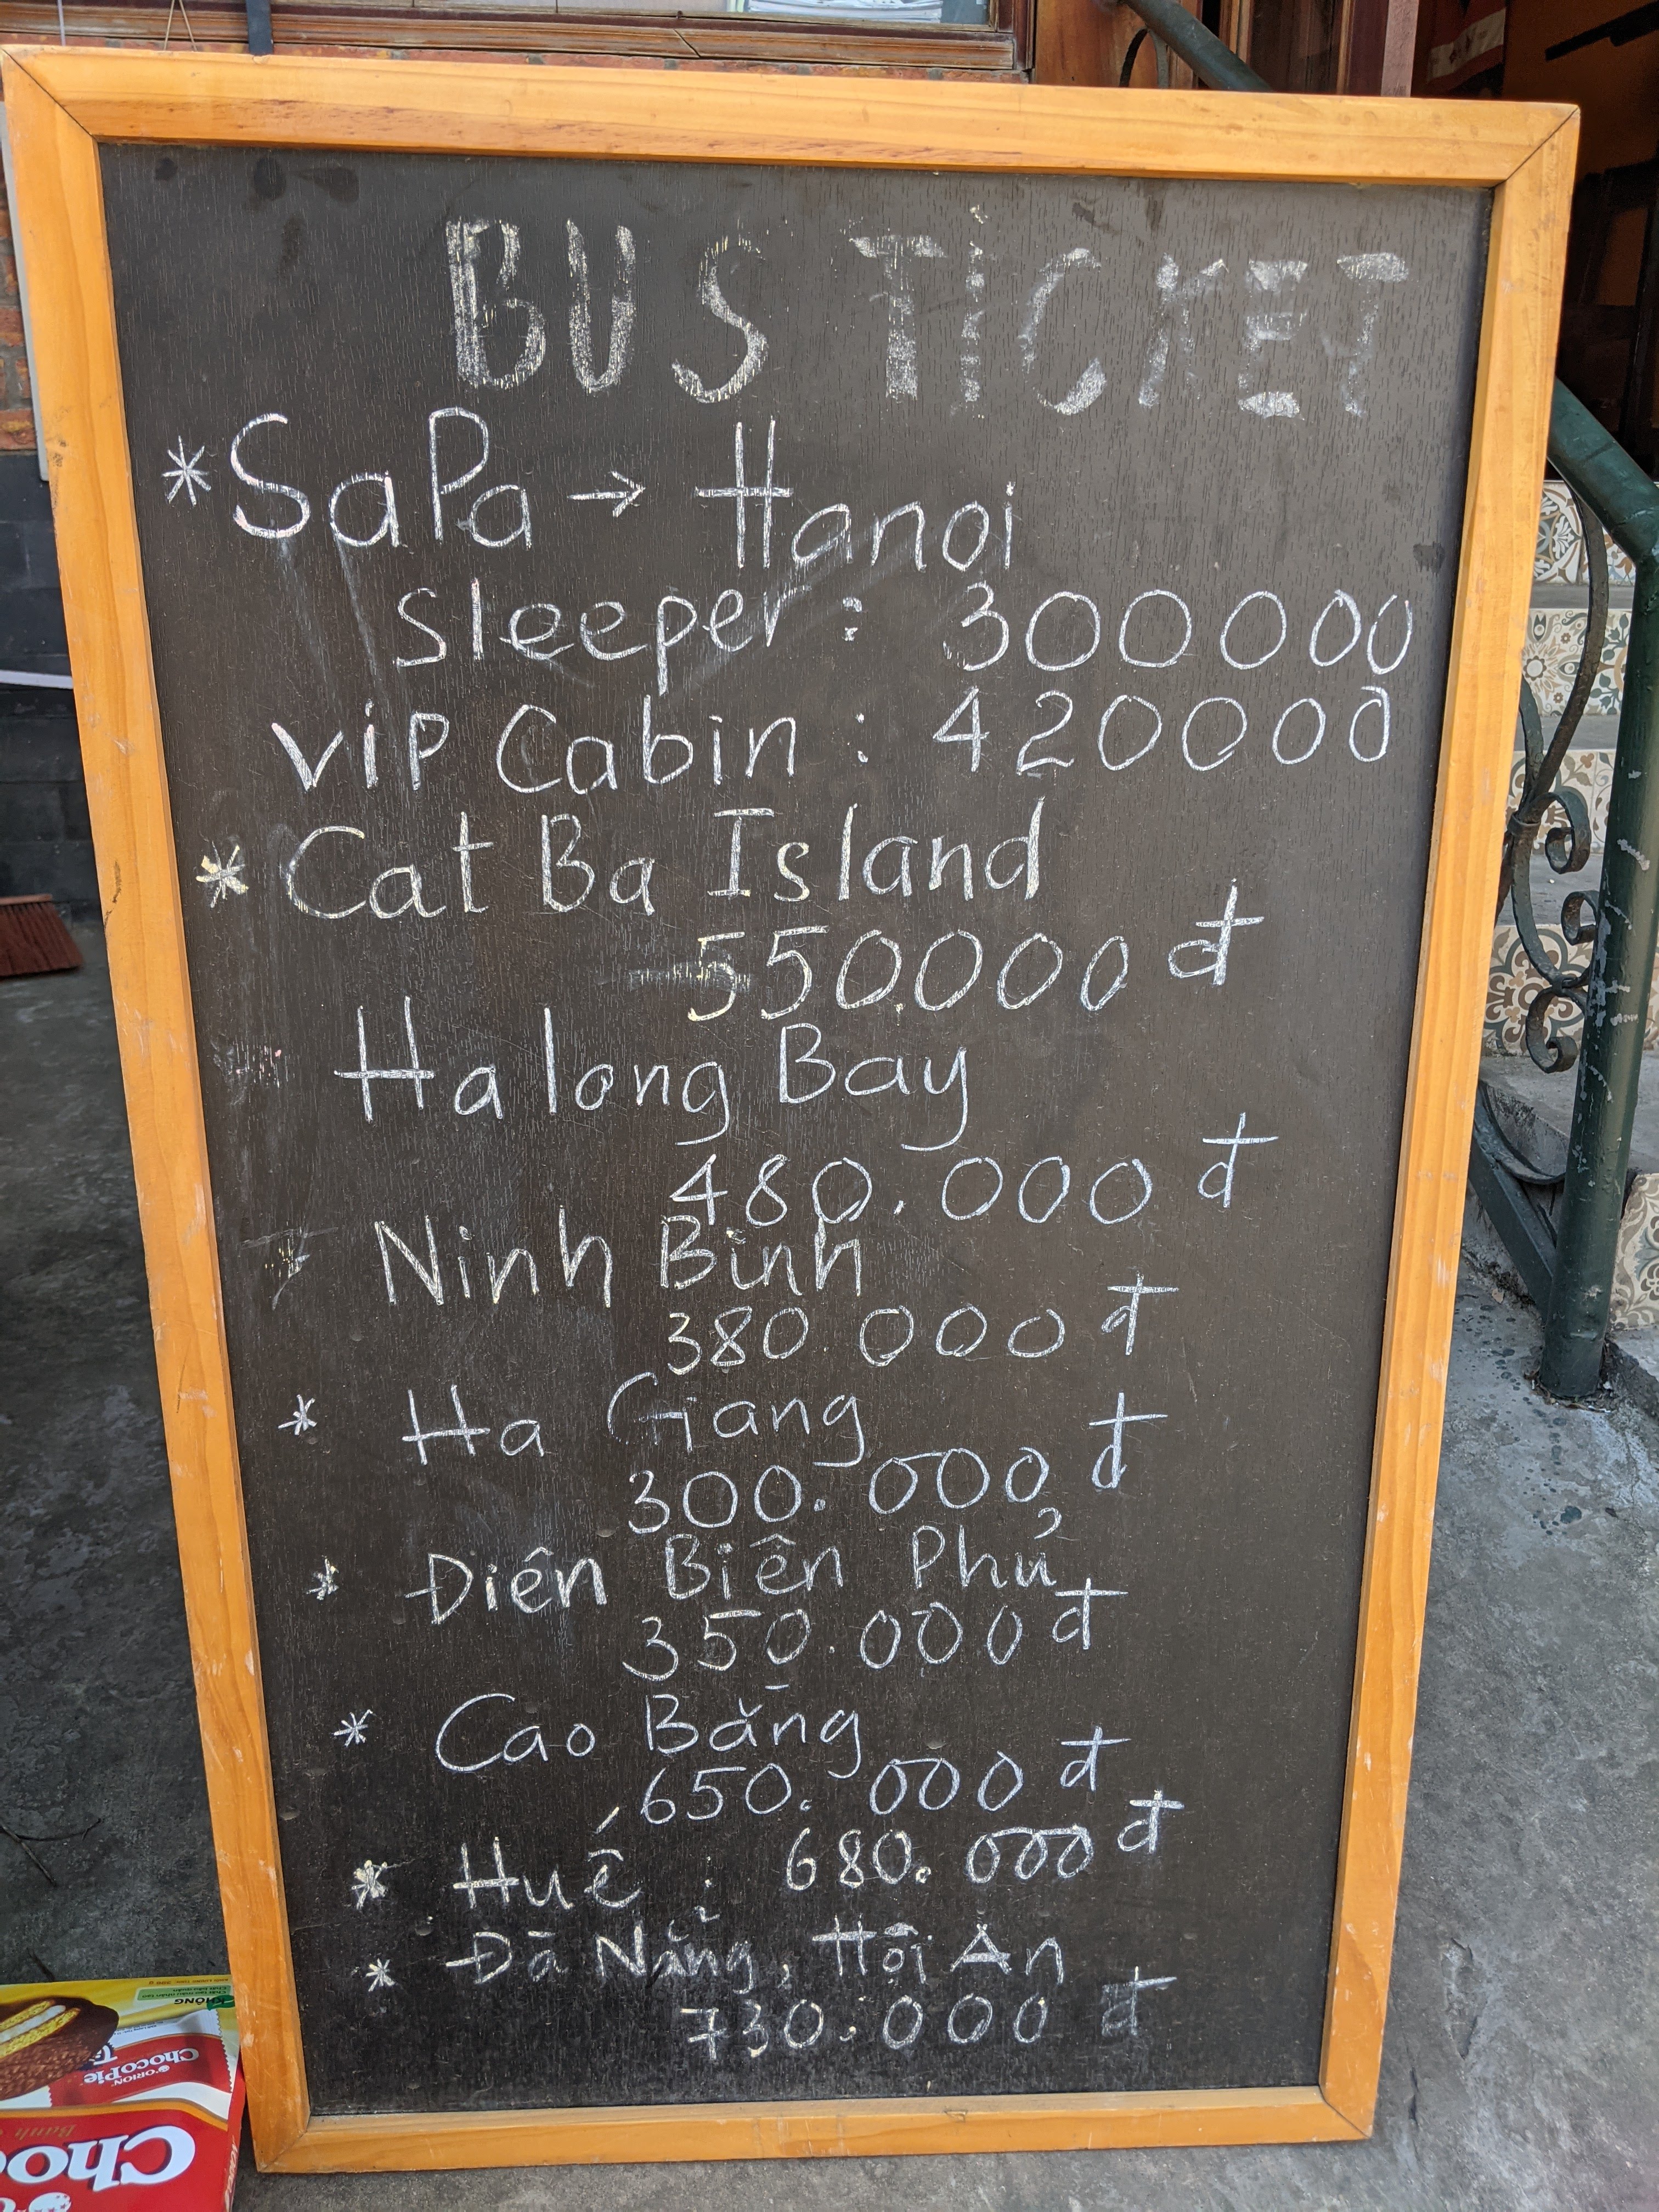 BUS TiCKET
* SaPa → Hanoi
sleeper : 300000
VIP Cabin : 420000
* Cat Ba Island
550000 đ
Ha long Bay
480.000 đ
Ninh Bình
380 000 đ
* Ha Giang
300.000 đ
* Điên Biên Phủ
350.000 đ
* Cao Bằng
650.000 đ
* Huế : 680.000 đ
* Đà Nẵng, Hội An
730.000 đ
ORION
ChocoPie
Cho